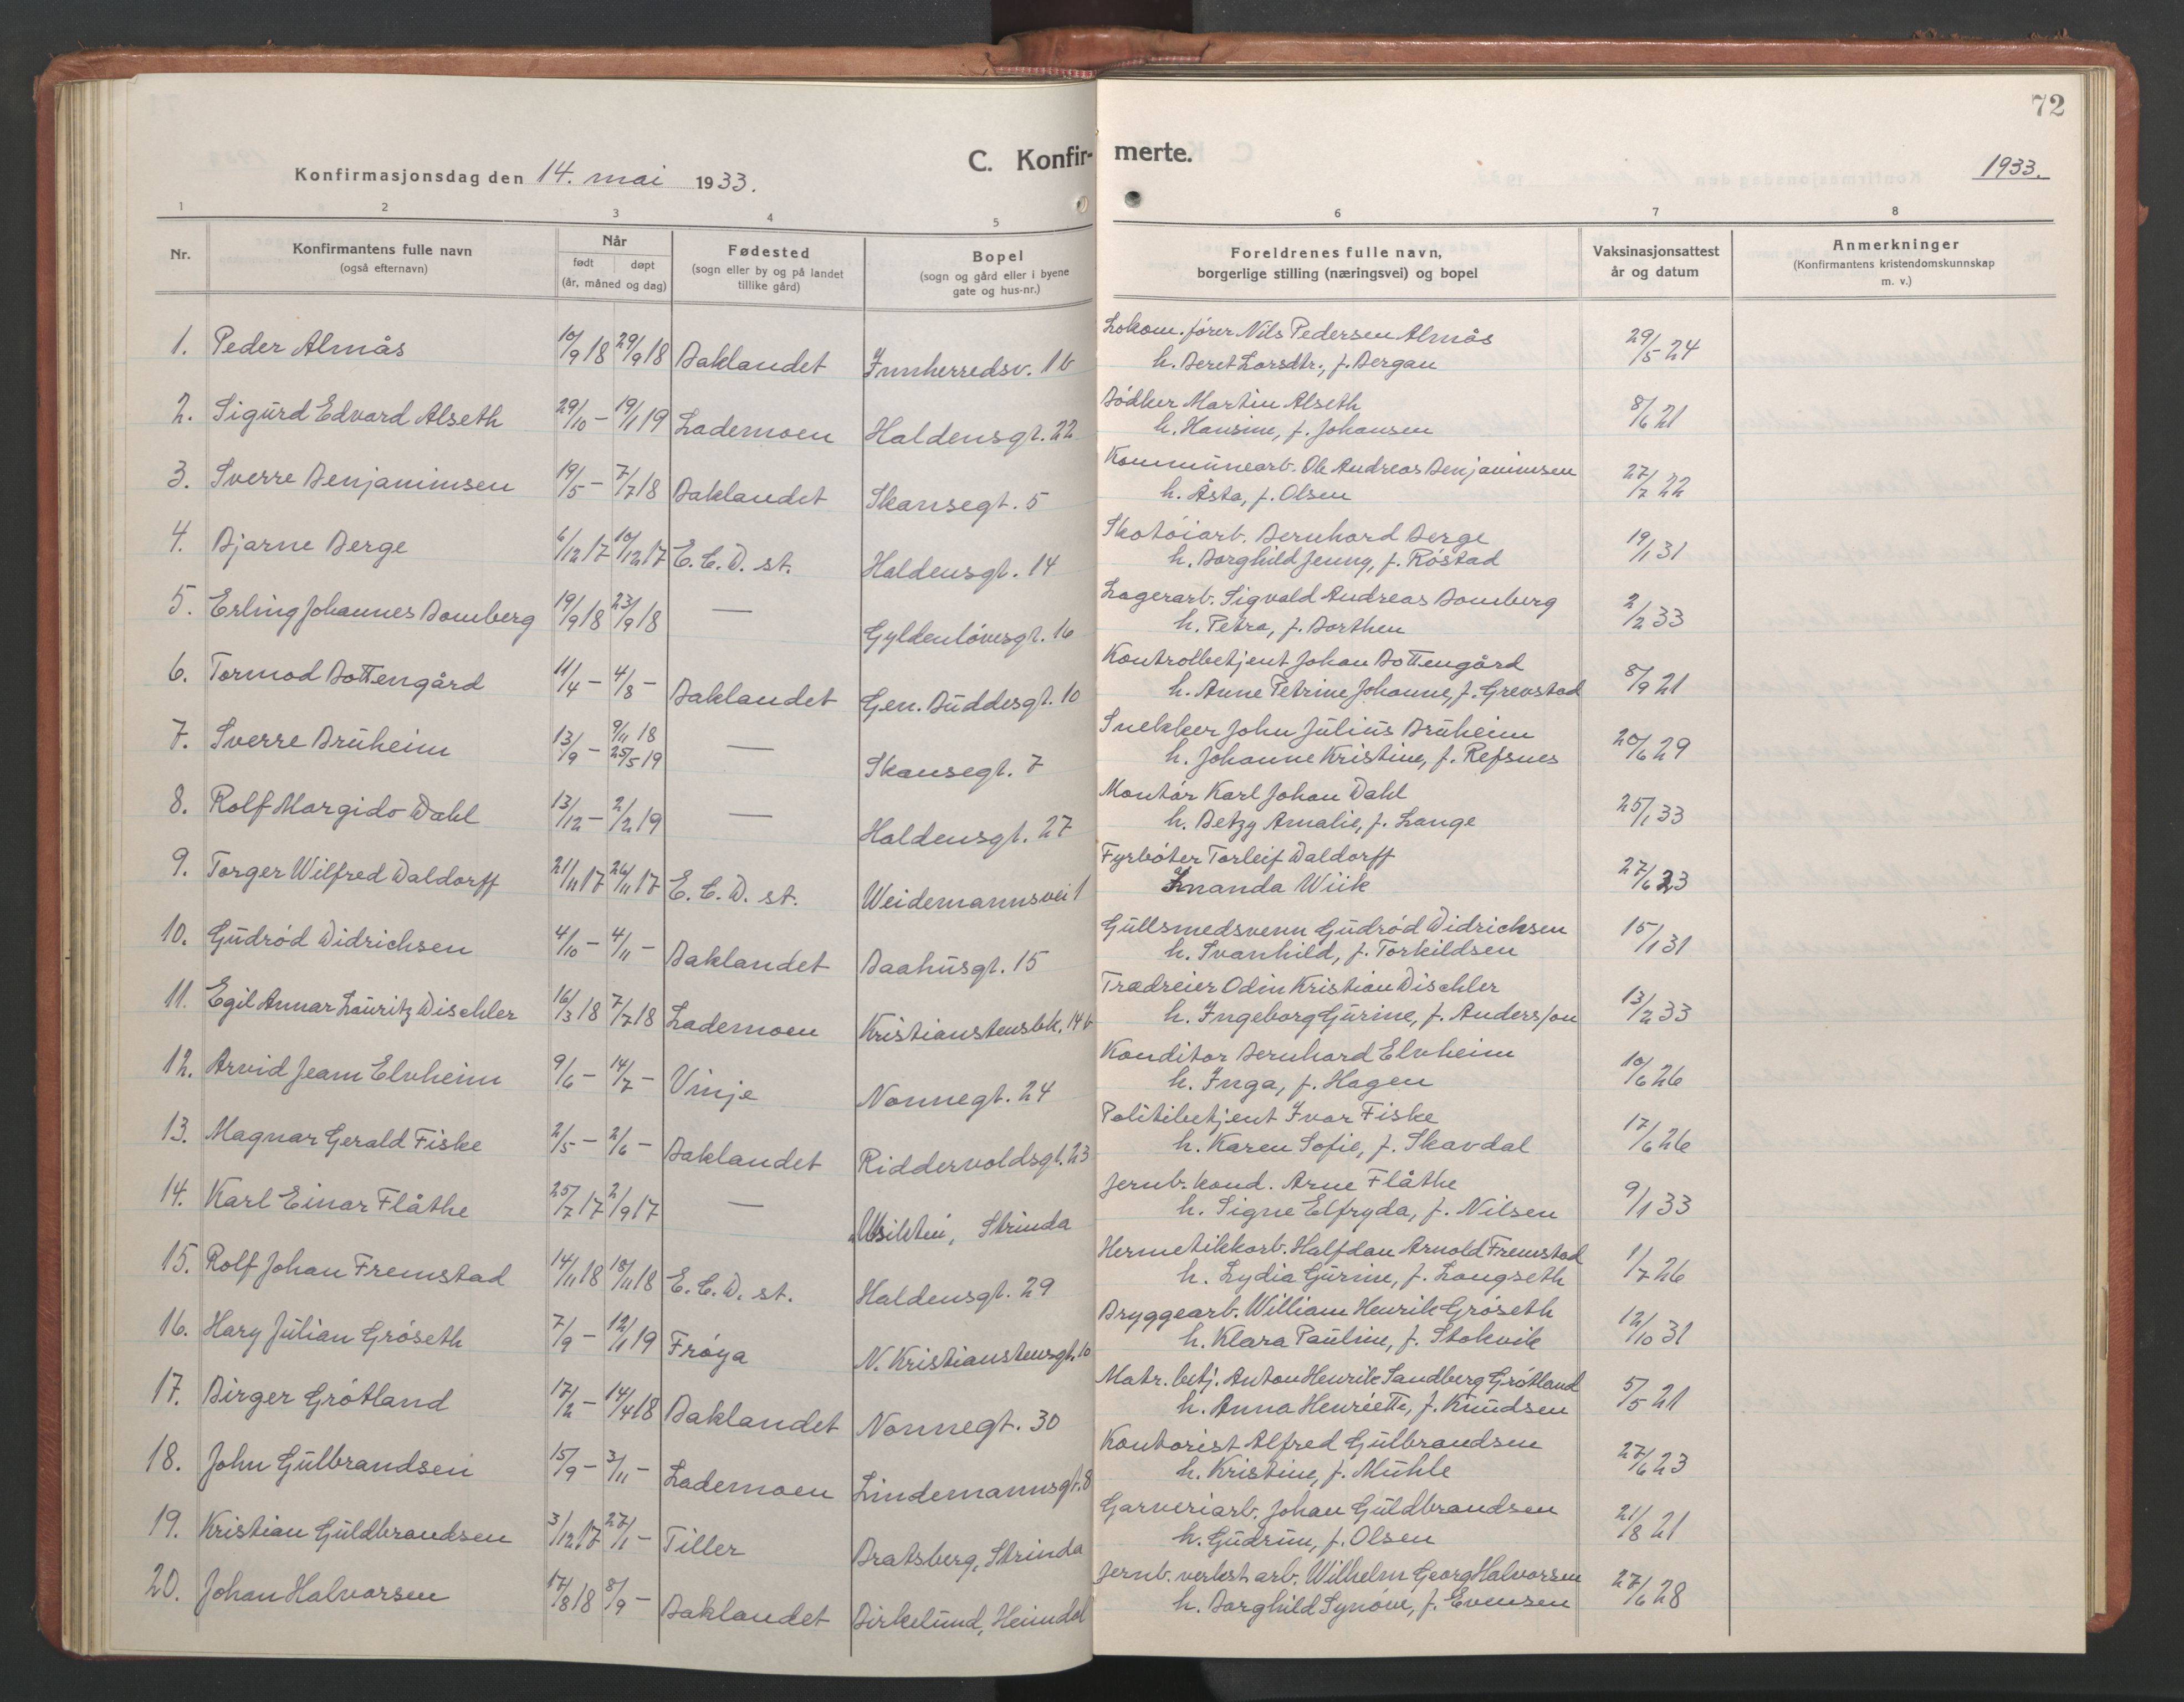 72
C. Konfir- merte.
Konfirmasjonsdag den 14. mai 1933.
1933.
1 2 3 4 5 6 7 8
Nr.
Konfirmantens fulle navn
(også efternavn)
Når
født døpt
(år, måned og dag)
Fødested
(sogn eller by og på landet
tillike gård)
Bopel
(sogn og gård eller i byene
gate og hus-nr.)
Foreldrenes fulle navn,
borgerlige stilling (næringsvei) og bopel
Vaksinasjonsattest
år og datum
Anmerkninger
(Konfirmantens kristendomskunnskap
m. v.)
1. Peder Almås 10/9 18 29/9 18 Baklandet Innherredsv. 1b Lokom. fører Nils Pedersen Almås 29/5 24
h. Beret Larsdtr., f. Bergan
2. Sigurd Edvard Alseth 29/10 – 19/1 19 Lademoen Haldensgt. 22 Bødker Martin Alseth 8/6 21
h. Hansine, f. Johansen
3. Sverre Benjaminsen 19/5 – 7/7 18 Baklandet Skansegt. 5 Kommunearb. Ole Andreas Benjaminsen 27/7 22
h. Åsta, f. Olsen
4. Bjarne Berge 6/12 17 10/12 17 E. C. D. st. Haldensgt. 14 Skotøiarb. Bernhard Berge 19/1 31
h. Borghild Jenny, f. Røstad
5. Erling Johannes Bomberg 19/9 18 23/9 18 — Gyldenløvesgt. 16 Lagerarb. Sigvald Andreas Bomberg 2/2 33
h. Petra, f. Borthen
6. Tormod Bottengård 11/4 – 4/8 – Baklandet Gen. Buddesgt. 10 Kontrolbetjent Johan Bottengård 8/9 21
h. Anne Petrine Johanne, f. Grevstad
7. Sverre Bruheim 13/9 – 9/11 18 25/5 19 — Skansegt. 7 Snekker John Julius Bruheim 20/6 29
h. Johanne Kristine, f. Refsnes
8. Rolf Margido Dahl 13/12 – 2/2 19 — Haldensgt. 27 Montør Karl Johan Dahl 25/1 33
h. Betzy Amalie, f. Lange
9. Torger Wilfred Daldorff 21/11 17 26/11 17 E. C. D. st. Weidemannsvei 1 Fyrbøter Torleif Daldorff 27/6 23
Inanda Wiik
10. Gudrød Didrichsen 4/10 – 4/11 – Baklandet Baahusgt. 15 Gullsmedsvenn Gudrød Didrichsen 15/1 31
h. Svanhild, f. Torkildsen
11. Egil Annar Lauritz Dischler 16/3 18 7/7 18 Lademoen Kristianstensbk. 14b Trædreier Odin Kristian Dischler 13/2 33
h. Ingeborg Gurine, f. Andersson
12. Arvid Jeam Elvheim 9/6 – 14/7 – Vinje Nonnegt. 24 Konditor Bernhard Elvheim 10/6 26
h. Inga, f. Hagen
13. Magnar Gerald Fiske 2/5 – 2/6 – Baklandet Riddervoldsgt. 23 Politibetjent Ivar Fiske 17/6 26
h. Karen Sofie, f. Skavdal
14. Karl Einar Flåthe 25/7 17 2/9 17 — Strinda Jernb. kond. Arne Flåthe 9/1 33
h. Signe Elfryda, f. Nilsen
15. Rolf Johan Fremstad 14/11 18 18/11 18 E. C. D. st. Haldensgt. 29 Hermetikkarb. Halfdan Arnold Fremstad 1/7 26
h. Lydia Gurine, f. Langseth
16. Hary Julian Grøseth 7/9 – 12/1 19 Frøya N. Kristianstensgt. 10 Bryggearb. William Henrik Grøseth 12/10 31
h. Klara Pauline, f. Stokvik
17. Birger Grøtland 17/2 – 14/4 18 Baklandet Nonnegt. 30 Matr. betj. Anton Henrik Sandberg Grøtland 5/5 21
h. Anna Henriette, f. Knudsen
18. John Gulbrandsen 15/9 – 3/11 – Lademoen Lindemannsgt. 8 Kontorist Alfred Gulbrandsen 27/6 23
h. Kristine, f. Mühle
19. Kristian Guldbrandsen 3/12 17 27/1 – Tiller Bratsberg, Strinda Garveriarb. Johan Guldbrandsen 21/8 21
h. Gudrun, f. Olsen
20. Johan Halvorsen 17/8 18 8/9 – Baklandet Birkelund, Heimdal Jernb. verkst. arb. Wilhelm Georg Halvorsen 27/6 28
h. Borghild Synøve, f. Evensen